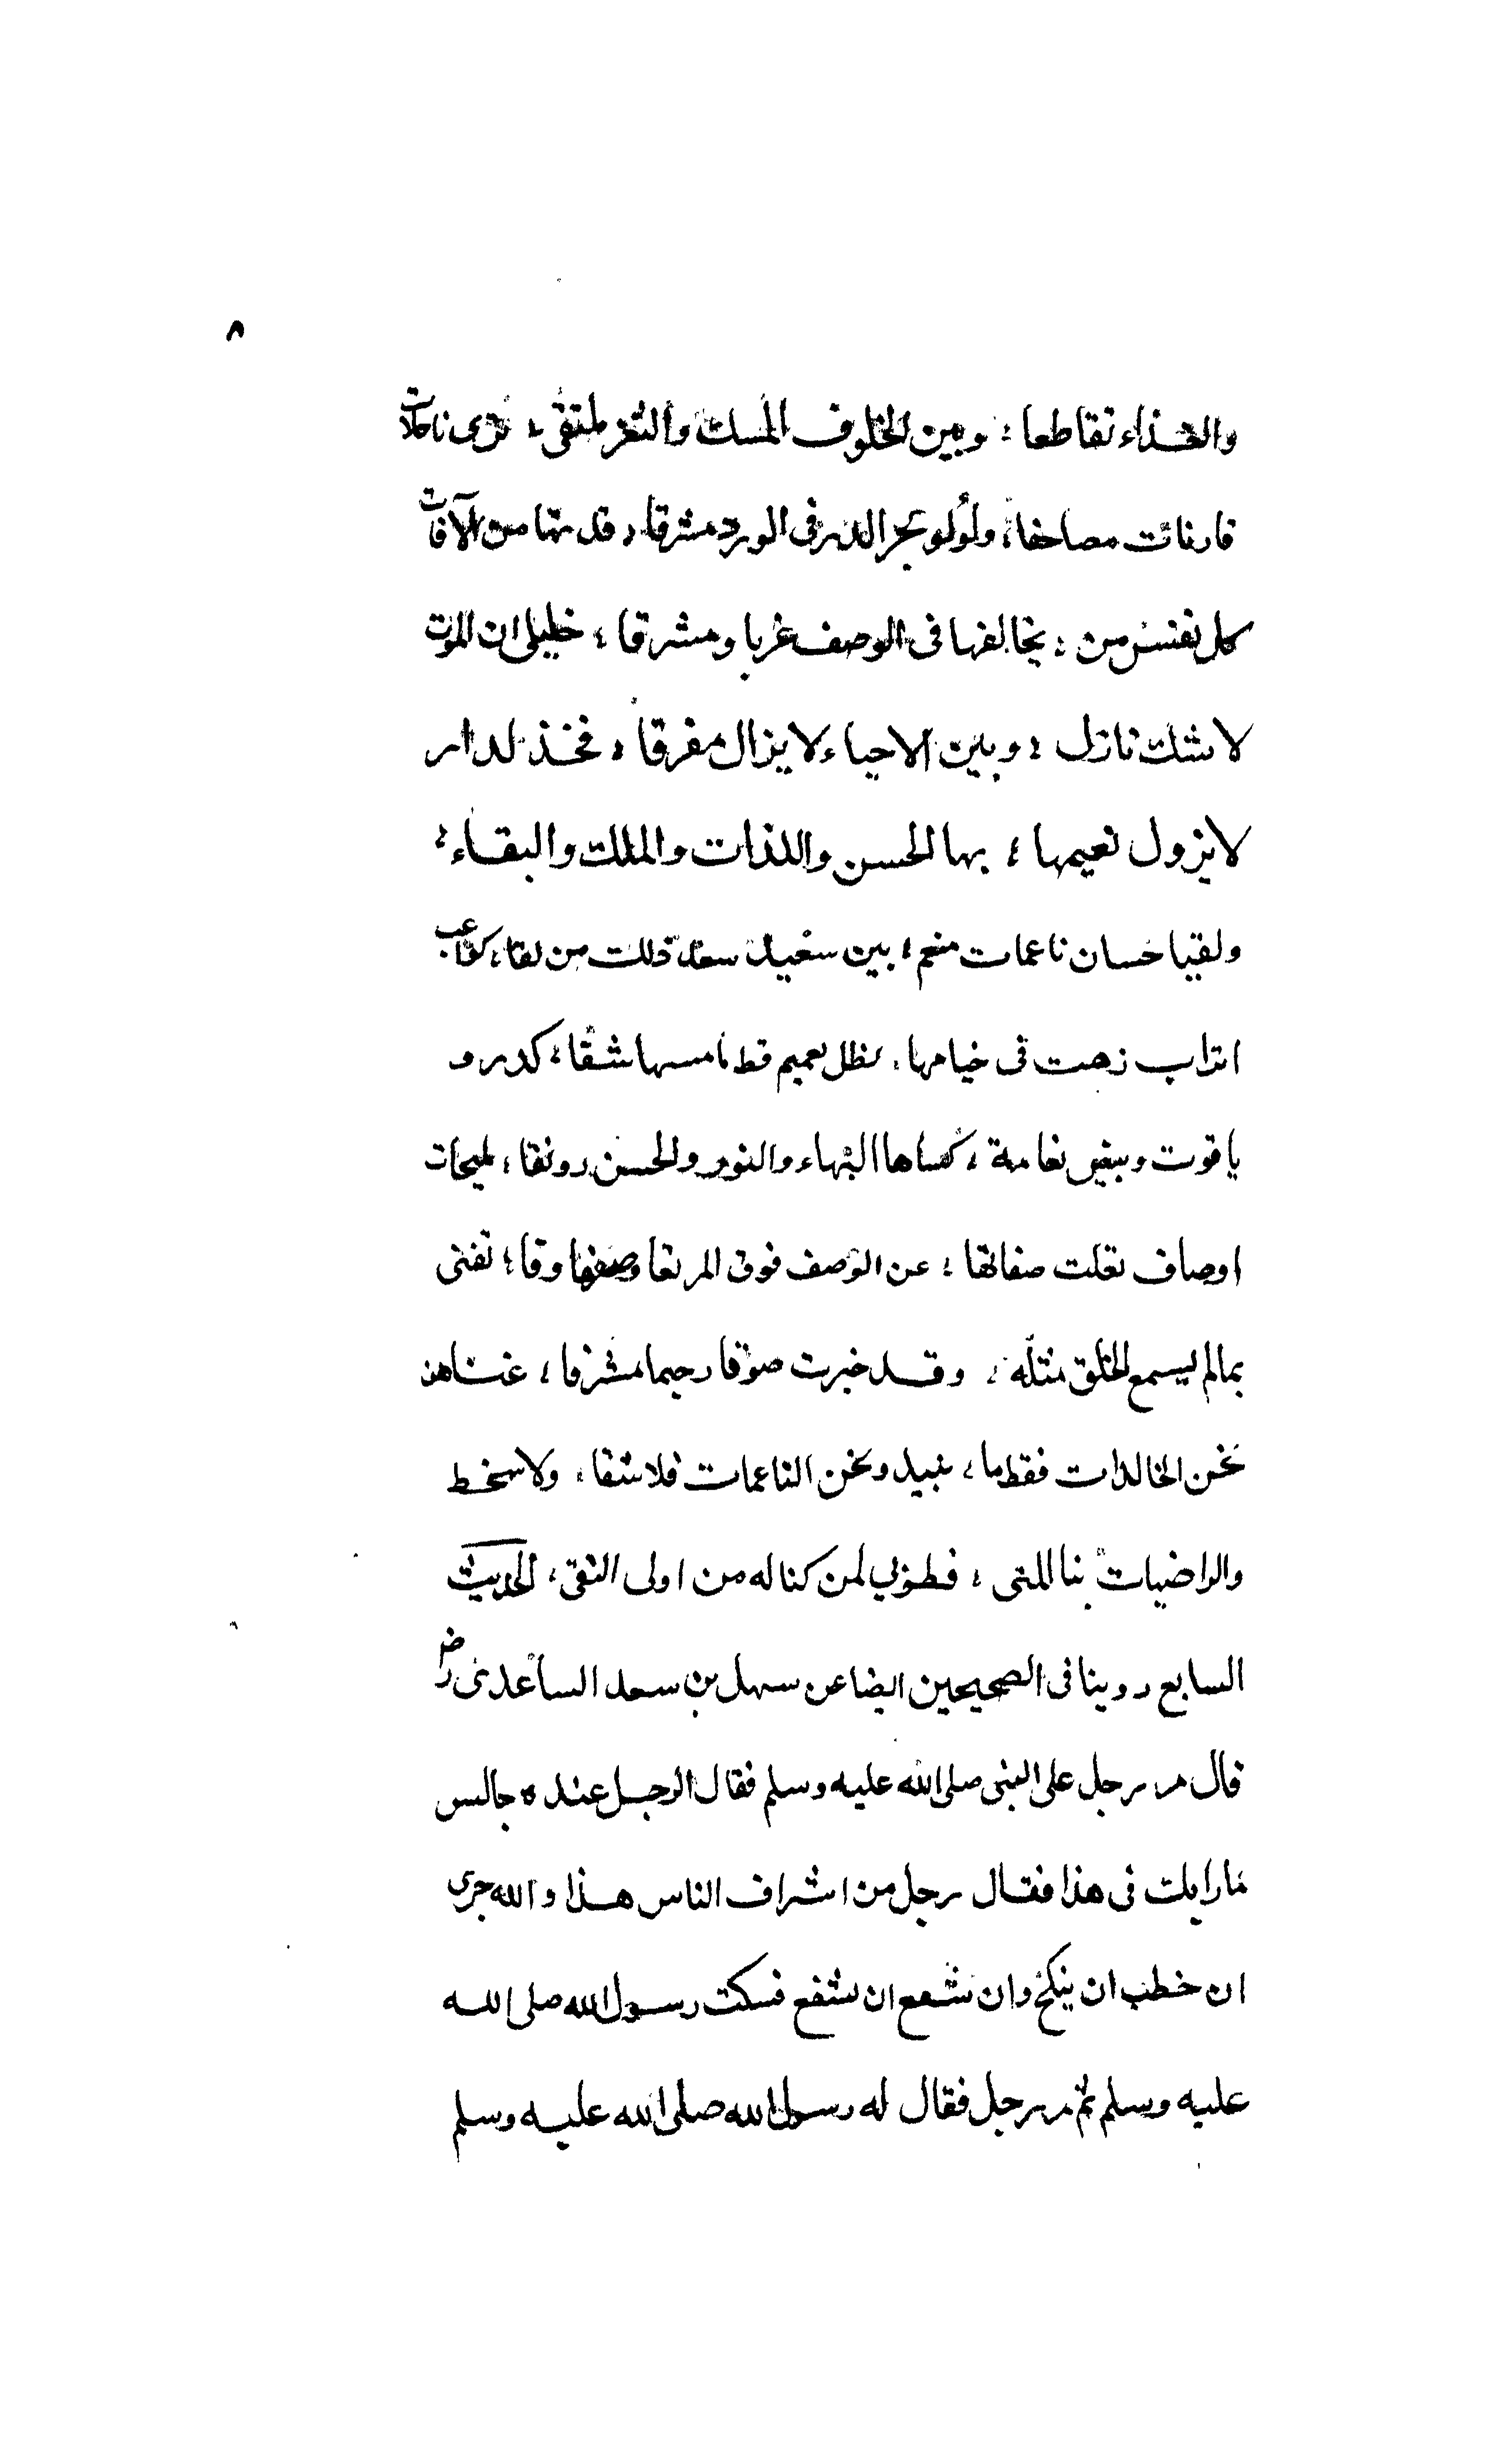 ٨
والغذاء تقاطعا ؛ وبين الخلوف المسك والثغر ملتقى ؛ ترى تاليات
قارئات مصاحفا ؛ ولؤلؤ بحر الدر في الورد مشرقا ؛ من الآفات
كل نفس من ؛ يخالفها في الوصف غربا ومشرقا ؛ خليلي ان الموت
لا شك نازل ؛ وبين الاحباء لا يزال مفرقا ؛ فخذ لدار
لا يزول نعيمها ؛ بها الحسن واللذات والملك والبقاء ؛
ولقيا حسان ناعمات منعم ؛ بين سعيد سعد ذلك من لقا ؛ كواعب
اتراب زهت في خيامها ، بظل نعيم قط ما مسها شقا ؛ كدر و
ياقوت وبيض نعامة ، كساها البهاء والنور والحسن رونقا ؛ مليحات
اوصاف تعلت صفاتها ؛ عن الوصف فوق المرتقا وصفها رقا ؛ تغنى
بما لم يسمع الخلق مثله ، وقد خبرت صوتا رحيما مشرفا ؛ غناهن
نحن الخالدات فقط ما ، نبيد ونحن الناعمات فلا شقا ، ولا سخط
والراضيات بنا للتى ؛ فطوبى لمن كنا له من اولى التقى ، الحديث
السابع روينا في الصحيحين ايضا عن سهل بن سعد الساعدى رض
قال مر رجل على النبى صلى الله عليه وسلم فقال الرجل عنده جالس
ما رايك في هذا فقال رجل من اشراف الناس هذا والله حرى
ان خطب ان ينكح وان شفع ان يشفع فسكت رسول الله صلى الله
عليه وسلم ثم مر رجل فقال له رسول الله صلى الله عليه وسلم